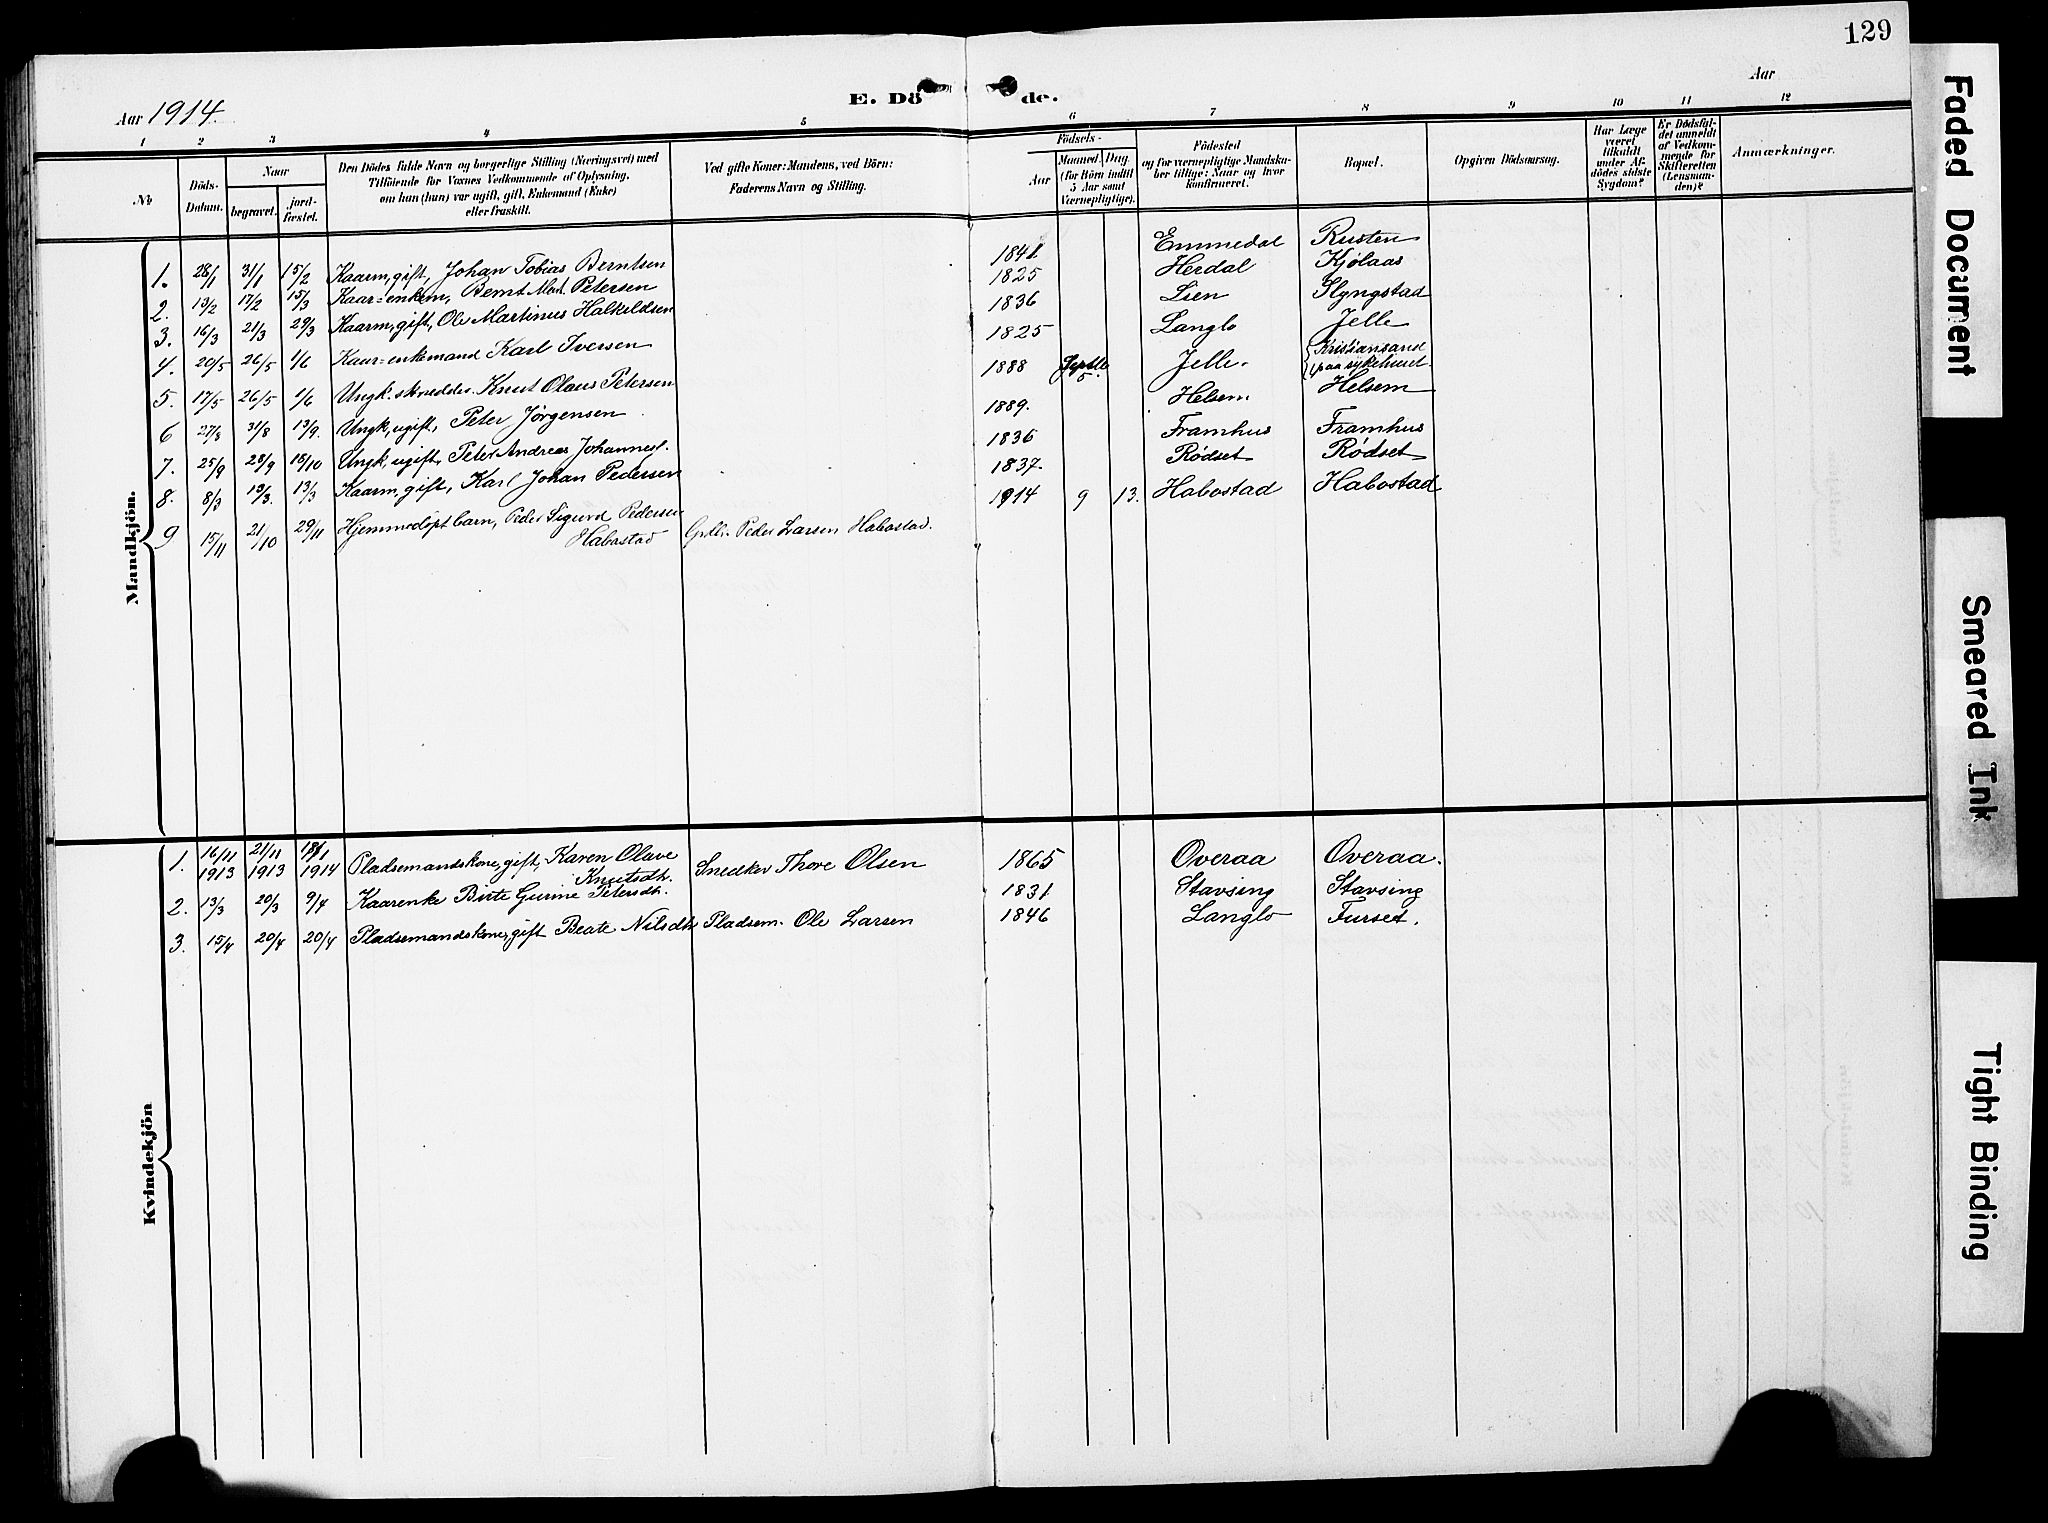 129
Aar 1914.
E. Dö de.
Aar
1 2 3 4 5 6 7 8 9 10 11 12
No
Döds-Datum.
Naar
begravet.
jord-fæstet.
Den Dödes fulde Navn og borgerlige Stilling (Næringsvei) med
Tilföiende for Voxnes Vedkommende af Oplysning,
om han (hun) var ugift, gift, Enkemand (Enke)
eller fraskilt.
Ved gifte Koner: Mandens, ved Börn:
Faderens Navn og Stilling.
Födsels-
Aar
Maaned. Dag.
(for Börn indtil
5 Aar samt
Værnepligtige).
Födested
og for værnepligtige Mandska-
ber tillige: Naar og hvor
konfirmeret.
Bopæl.
Opgiven Dödsaarsag.
Har Læge
været
tilkaldt
under Af-
dödes sidste
Sygdom?
Er Dödsfal-
det anmeldt
af Vedkom-
mende for
Skifteretten
(Lensman-
den)?
Anmærkninger.
Mandkjön.
1. 28/1 31/1 15/2 Kaarm, gift, Johan Tobias Berntsen 1841 Emmedal Rusten
2. 13/2 17/2 15/3 Kaar=enkem, Bernt Mart. Petersen 1825 Herdal Kjølaas
3. 16/3 21/3 29/3 Kaarm, gift, Ole Martinus Halkildsen 1836 Lien Slyngstad
4. 20/5 26/5 1/6 Kaar=enkemand Karl Iversen 1825 Langlo Jelle
5. 17/5 26/5 1/6 Ungk. skrædder. Knut Olaus Petersen 1888 Septbr 5. Jelle. Kristiansand
paa sykehuset.
6 27/8 31/8 13/9. Ungk, ugift, Peter Jørgensen 1889. Helsem Helsem
7. 25/9 28/9 18/10 Ungk, ugift, Peter Andreas Johannes. 1836 Framhus Framhus
8. 8/3 13/3. 13/3 Kaarm, gift, Karl Johan Pedersen 1837. Rødset Rødset
9 15/11 21/10 29/11 Hjemmedøpt barn, Peder Sigurd Pedersen
Habostad Gdbr. Peder Larsen Habostad. 1914 9 13. Habostad Habostad
Kvindekjön
1. 16/11 1913 21/11 1913 18/1 1914 Pladsemandskone, gift, Karen Olave
Knutsdtr. Snedker Thore Olsen 1865 Overaa Overaa.
2. 13/3 20/3 9/4 Kaarenke Birte Gurine Petersdtr. 1831 Stavsing Stavsing
3. 15/4 20/4 20/4 Pladsemandskone, gift Beate Nilsdtr Pladsem. Ole Larsen 1846 Langlo Furset.
Faded Document
Smeared Ink
Tight Binding